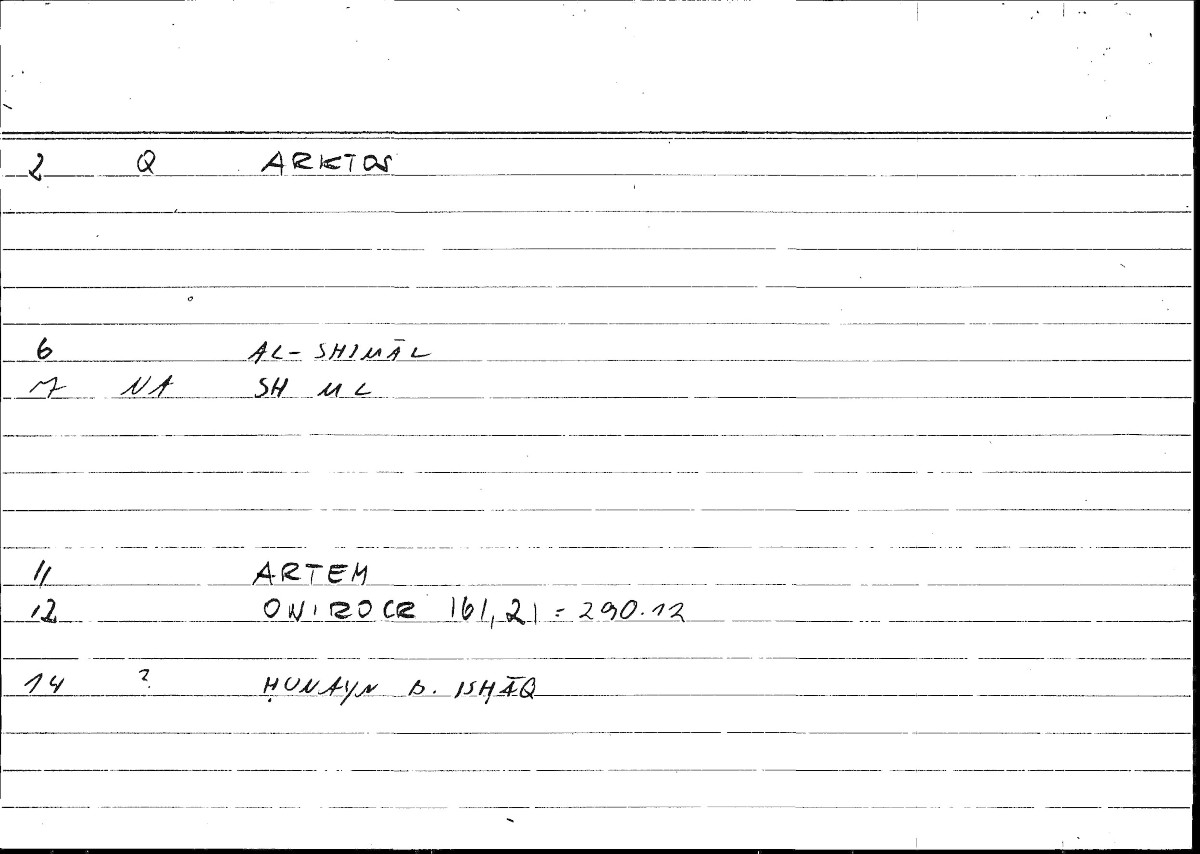 2 Q ARKTOS
6 AL-SHIMĀL
7 NA SH M L
11 ARTEM
12 ONIROCR 161,21 = 290.12
14 ? ḤUNAYN B. ISḤĀQ